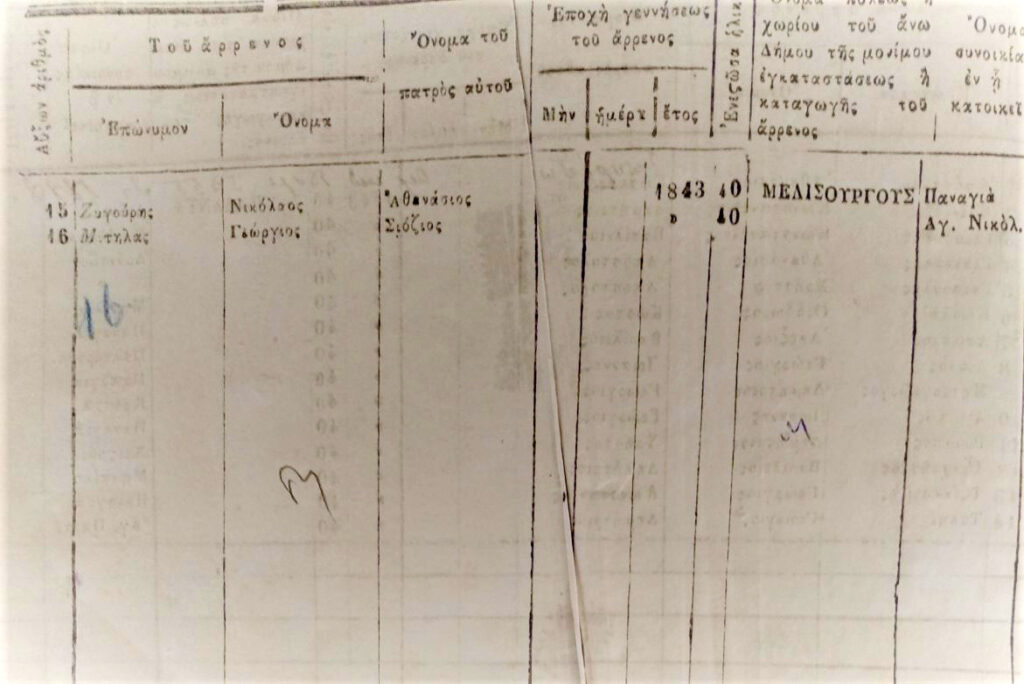 Αὔξων ἀριθμὸς
Τοῦ ἄρρενος
Ἐπώνυμον
Ὄνομα
Ὄνομα τοῦ
πατρὸς αὐτοῦ
Ἐποχὴ γεννήσεως
τοῦ ἄρρενος
Μὴν
ἡμέρα
ἔτος
χωρίου τοῦ ἄνω
Δήμου τῆς μονίμου
ἐγκαταστάσεως ἢ
καταγωγῆς τοῦ
ἄρρενος
συνοικία
ἐν ᾗ
κατοικεῖ
15 Ζυγούρης Νικόλαος Ἀθανάσιος 1843 40 ΜΕΛΙΣΟΥΡΓΟΥΣ Παναγιὰ
16 Γεώργιος Σιόζιος » 40 Αγ. Νικόλ.
16